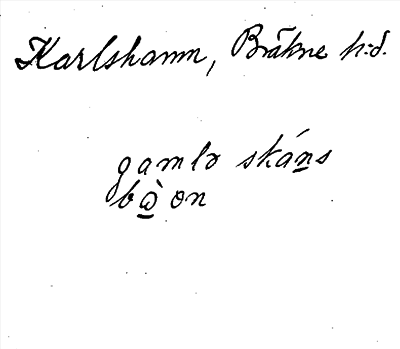 Karlshamn, Bräkne h:d.
gamlə skán̲s
bὼ̲ ən